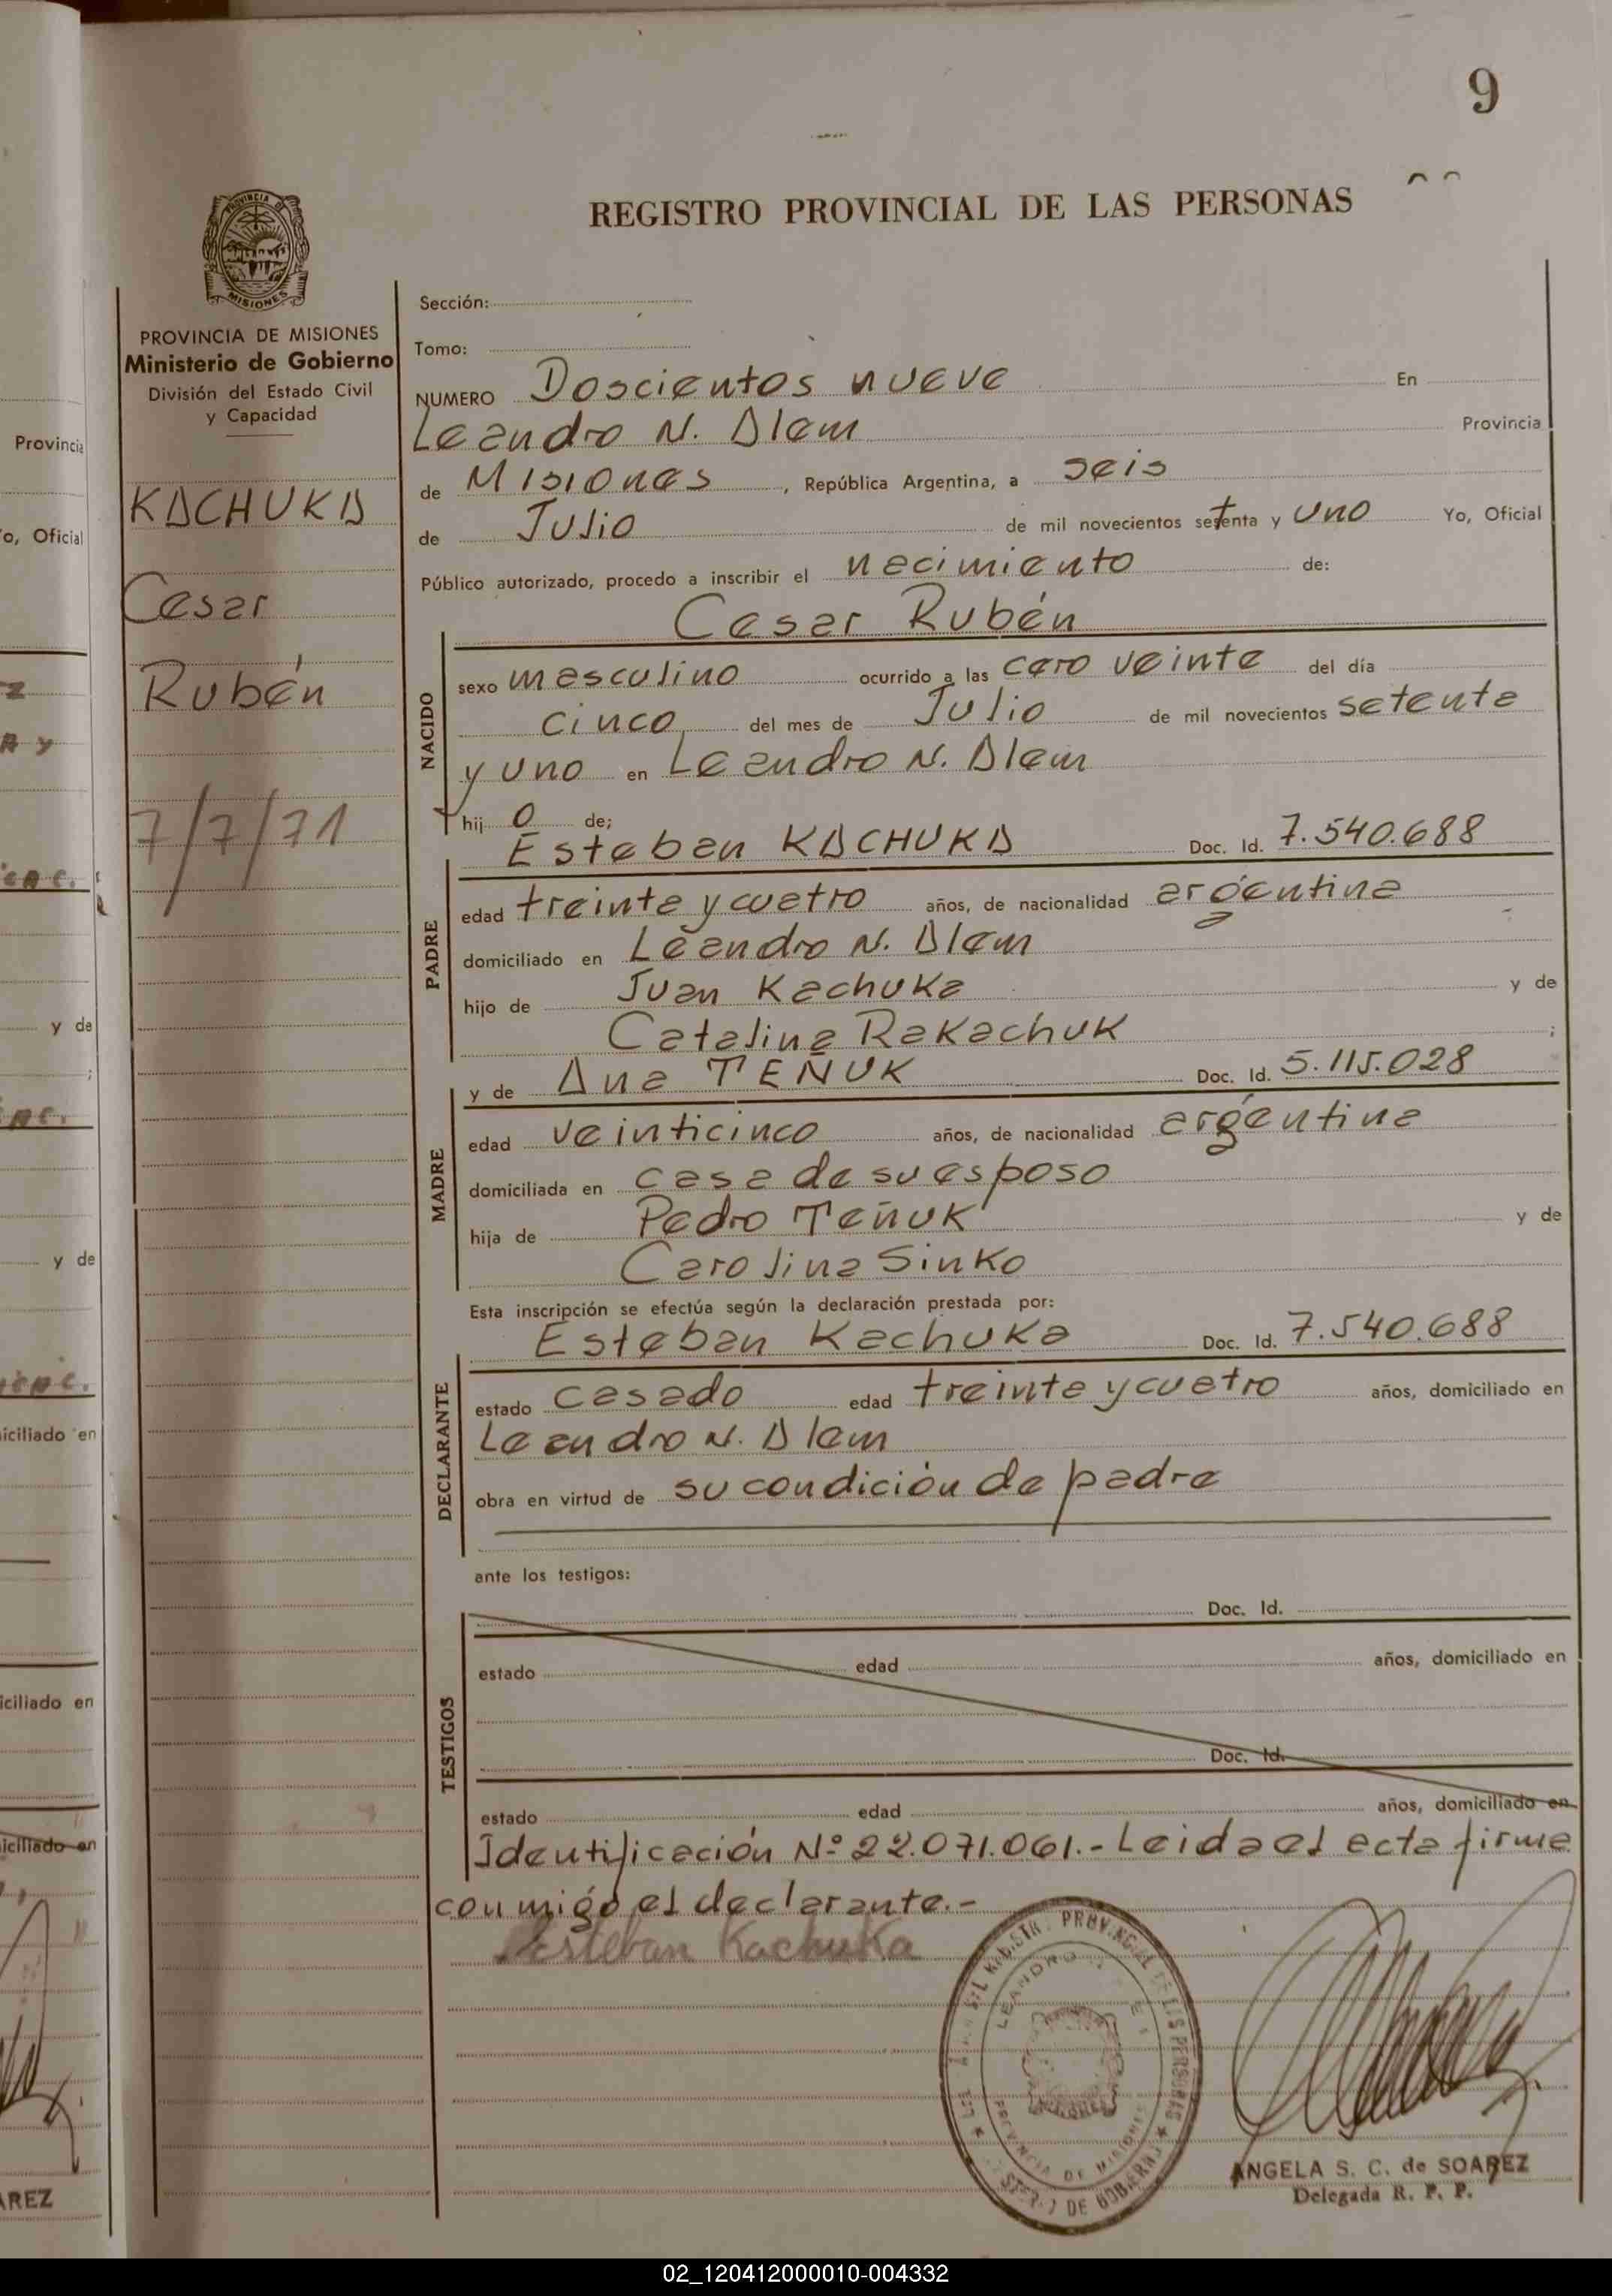 9
REGISTRO PROVINCIAL DE LAS PERSONAS
PROVINCIA DE
MISIONES
PROVINCIA DE MISIONES
Ministerio de Gobierno
División del Estado Civil
y Capacidad
KACHUKA
Cesar
Rubén
7/7/71
Sección:
Tomo:
NUMERO Doscientos nueve En
Leandro N. Alem Provincia
de Misiones, República Argentina, a seis
de Julio de mil novecientos setenta y uno Yo, Oficial
Público autorizado, procedo a inscribir el necimiento de:
Cesar Rubén
NACIDO
sexo masculino ocurrido a las cero veinte del día
cinco del mes de Julio de mil novecientos setenta
y uno en Leandro N. Alem
hij o de;
Esteban KACHUKA Doc. Id. 7.540.688
PADRE
edad treinta y cuatro años, de nacionalidad argentina
domiciliado en Leandro N. Alem
hijo de Juan Kachuka y de
Catalina Rakachuk ;
y de Ana TEÑUK Doc. Id. 5.115.028
MADRE
edad veinticinco años, de nacionalidad argentina
domiciliada en casa de su esposo
hija de Pedro Teñuk y de
Carolina Sinko
Esta inscripción se efectúa según la declaración prestada por:
Esteban Kachuka Doc. Id. 7.540.688
DECLARANTE
estado casado edad treinta y cuatro años, domiciliado en
Leandro N. Alem
obra en virtud de su condición de padre
ante los testigos:
Doc. Id.
TESTIGOS
estado edad años, domiciliado en
Doc. Id.
estado edad años, domiciliado en
Identificación Nº 22.071.061.- Leida el acta firma
conmigo el declarante.-
Esteban Kachuka
LEANDRO
PROVINCIA DE MISIONES
DE GOBIERNO
ANGELA S. C. de SOAREZ
Delegada R. P. P.
Provincia
Yo, Oficial
y de
;
y de
iciliado en
iciliado en
iciliado en
AREZ
02_120412000010-004332